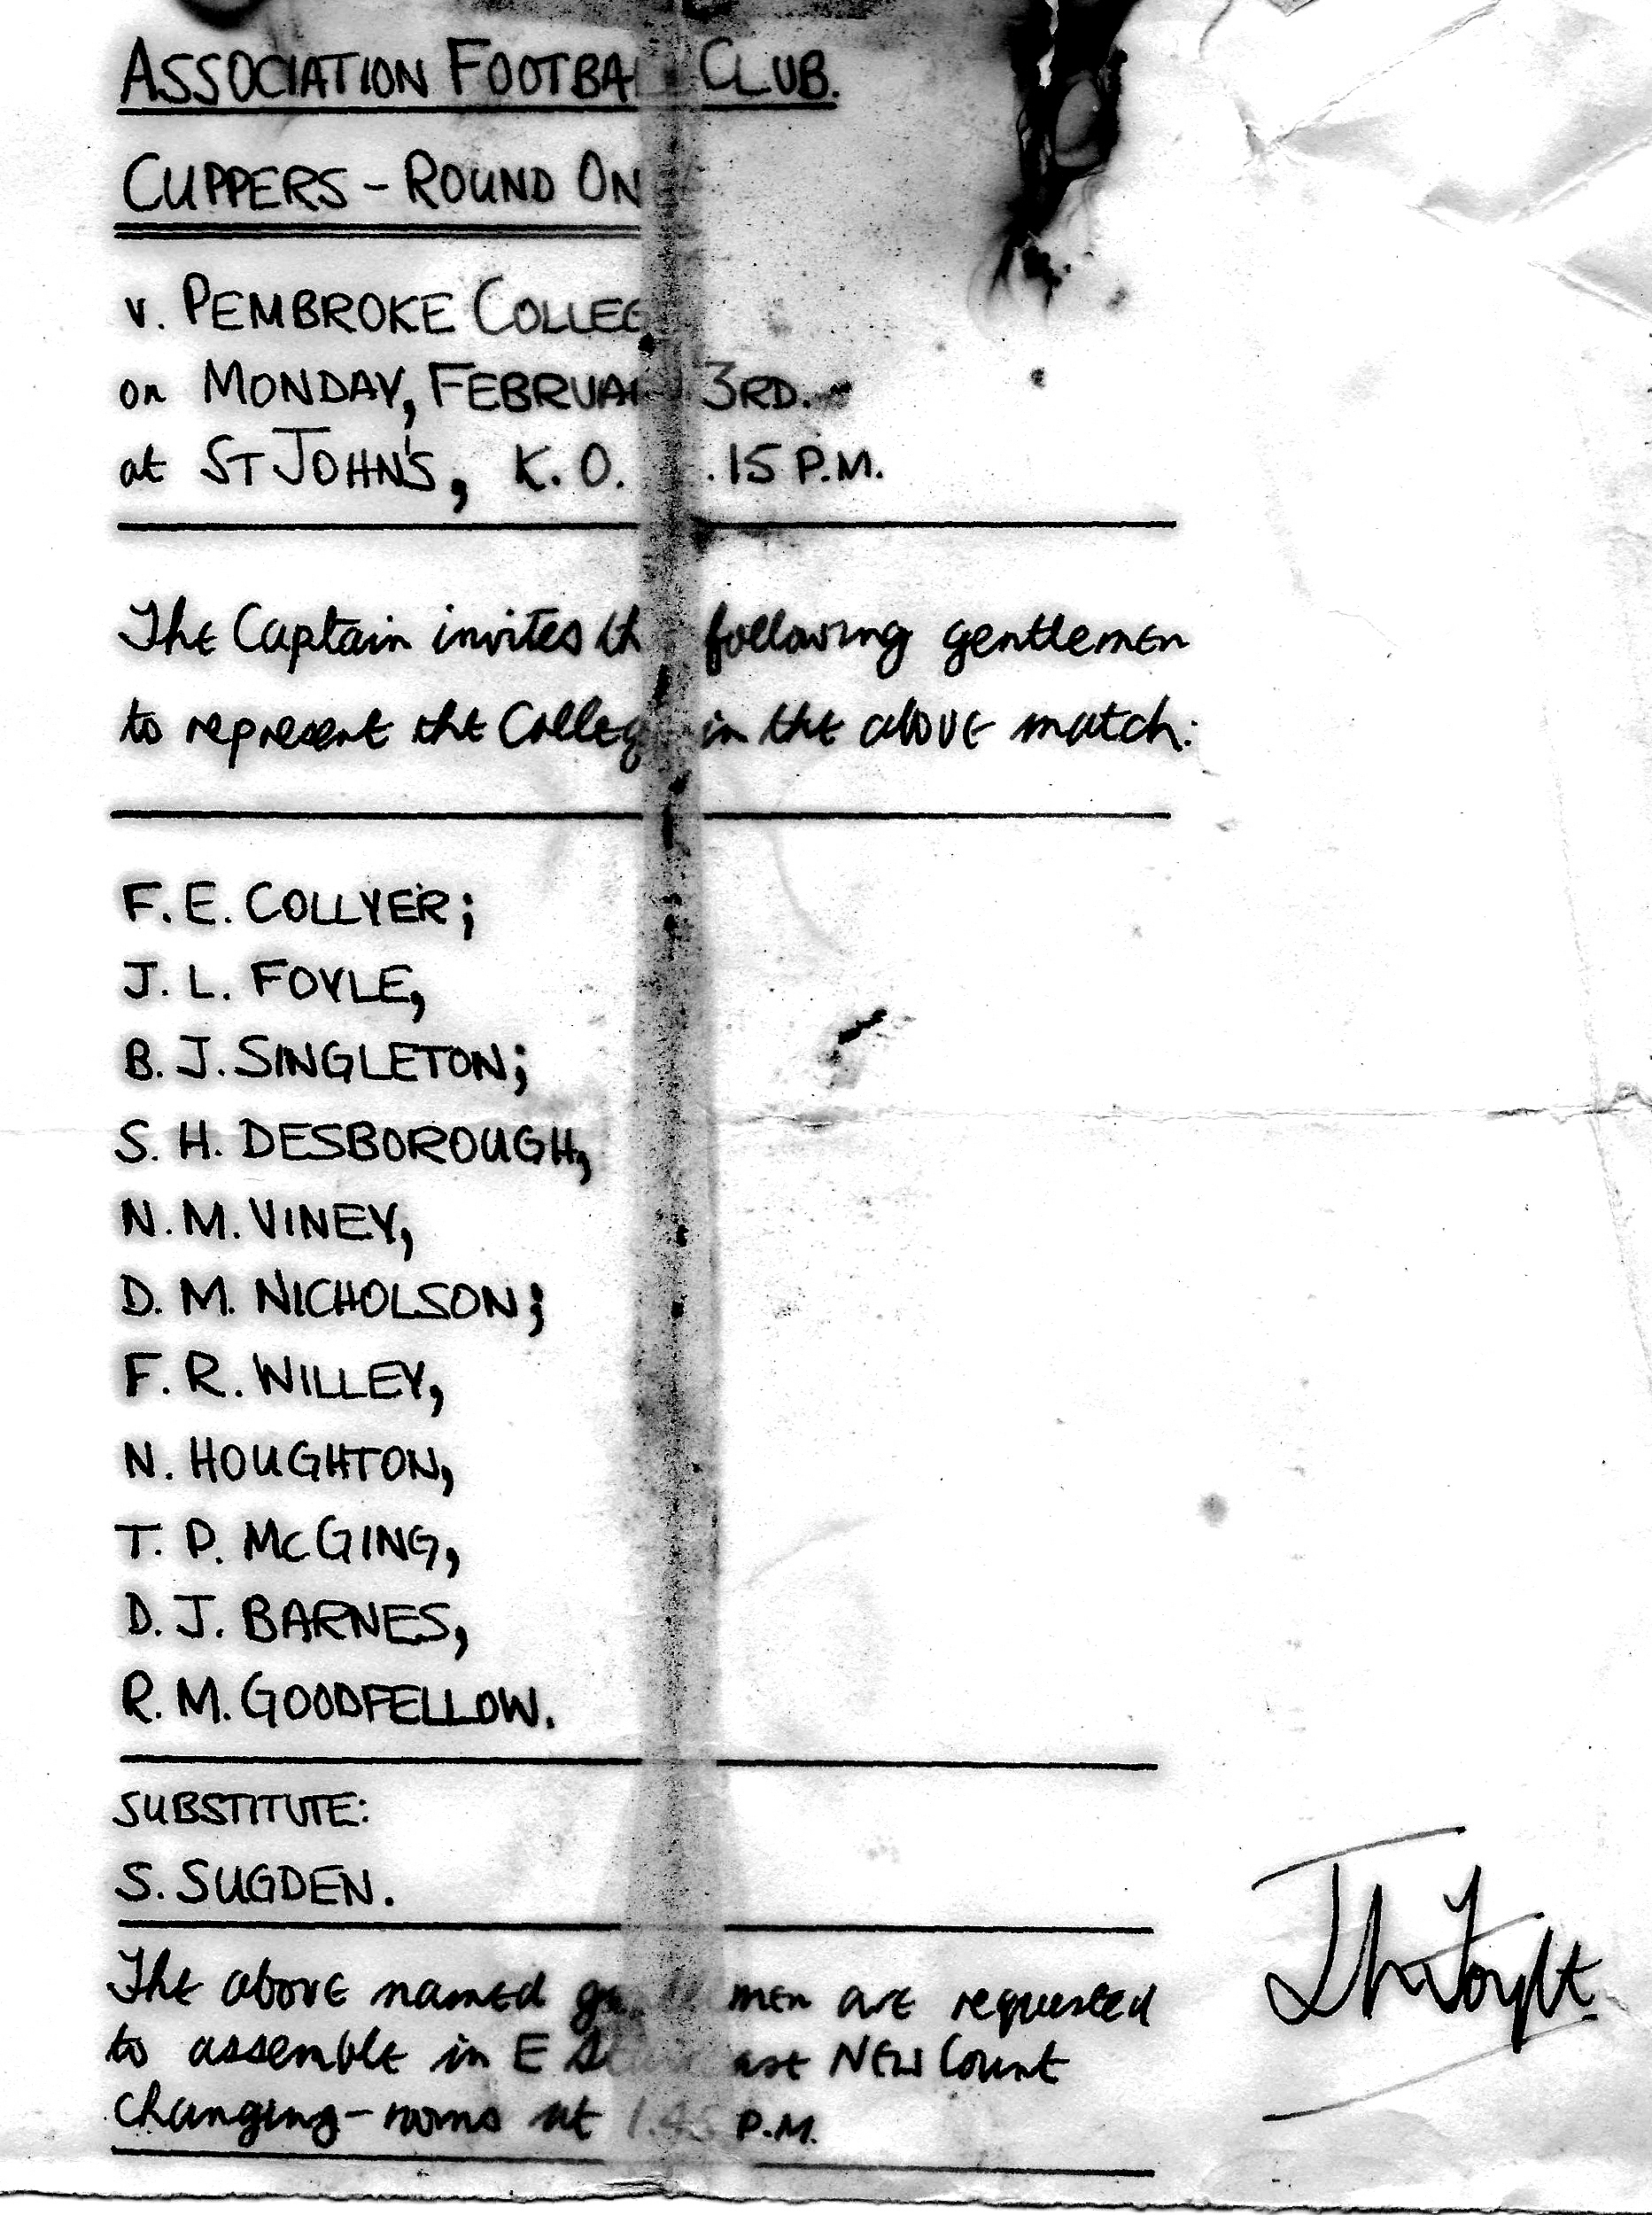 ASSOCIATION FOOTBALL CLUB.
CUPPERS - ROUND ON
v. PEMBROKE COLLEG
on MONDAY, FEBRUARY 3RD.
at ST JOHN'S, K.O. .15 P.M.
The Captain invites the following gentlemen
to represent the College in the above match:
F. E. COLLYER;
J. L. FOYLE,
B. J. SINGLETON;
S. H. DESBOROUGH,
N. M. VINEY,
D. M. NICHOLSON;
F. R. WILLEY,
N. HOUGHTON,
T. P. McGING,
D. J. BARNES,
R. M. GOODFELLOW.
SUBSTITUTE:
S. SUGDEN.
The above named gentlemen are requested
to assemble in E Staircase NEW Court
changing-rooms at 1.45 P.M.